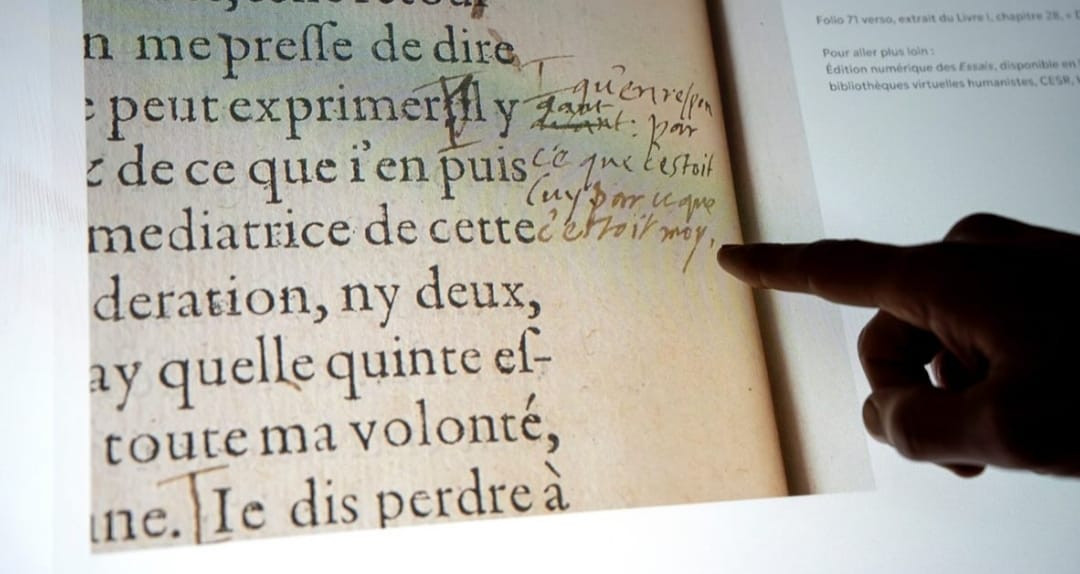 n me preſſe de dire
peut exprimer Il y
de ce que i'en puis
mediatrice de cette
deration, ny deux,
ay quelle quinte eſ-
toute ma volonté,
ne. Ie dis perdre à
qu'en respon
dant: par
ce que c'estoit
luy par ce que
c'estoit moy,
Folio 71 verso, extrait du Livre I, chapitre 28, «
Pour aller plus loin :
Édition numérique des Essais, disponible en
bibliothèques virtuelles humanistes, CESR,